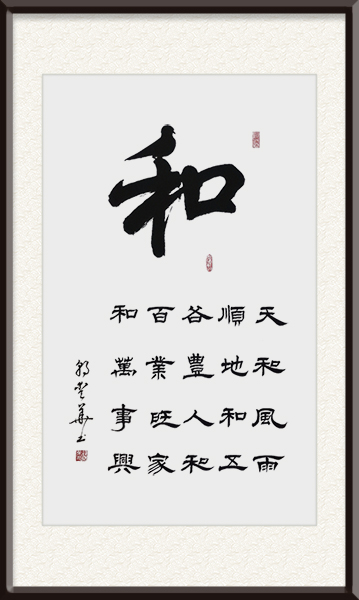 和
天和風雨
順地和五
谷豊人和
百業旺家
和萬事興
華书